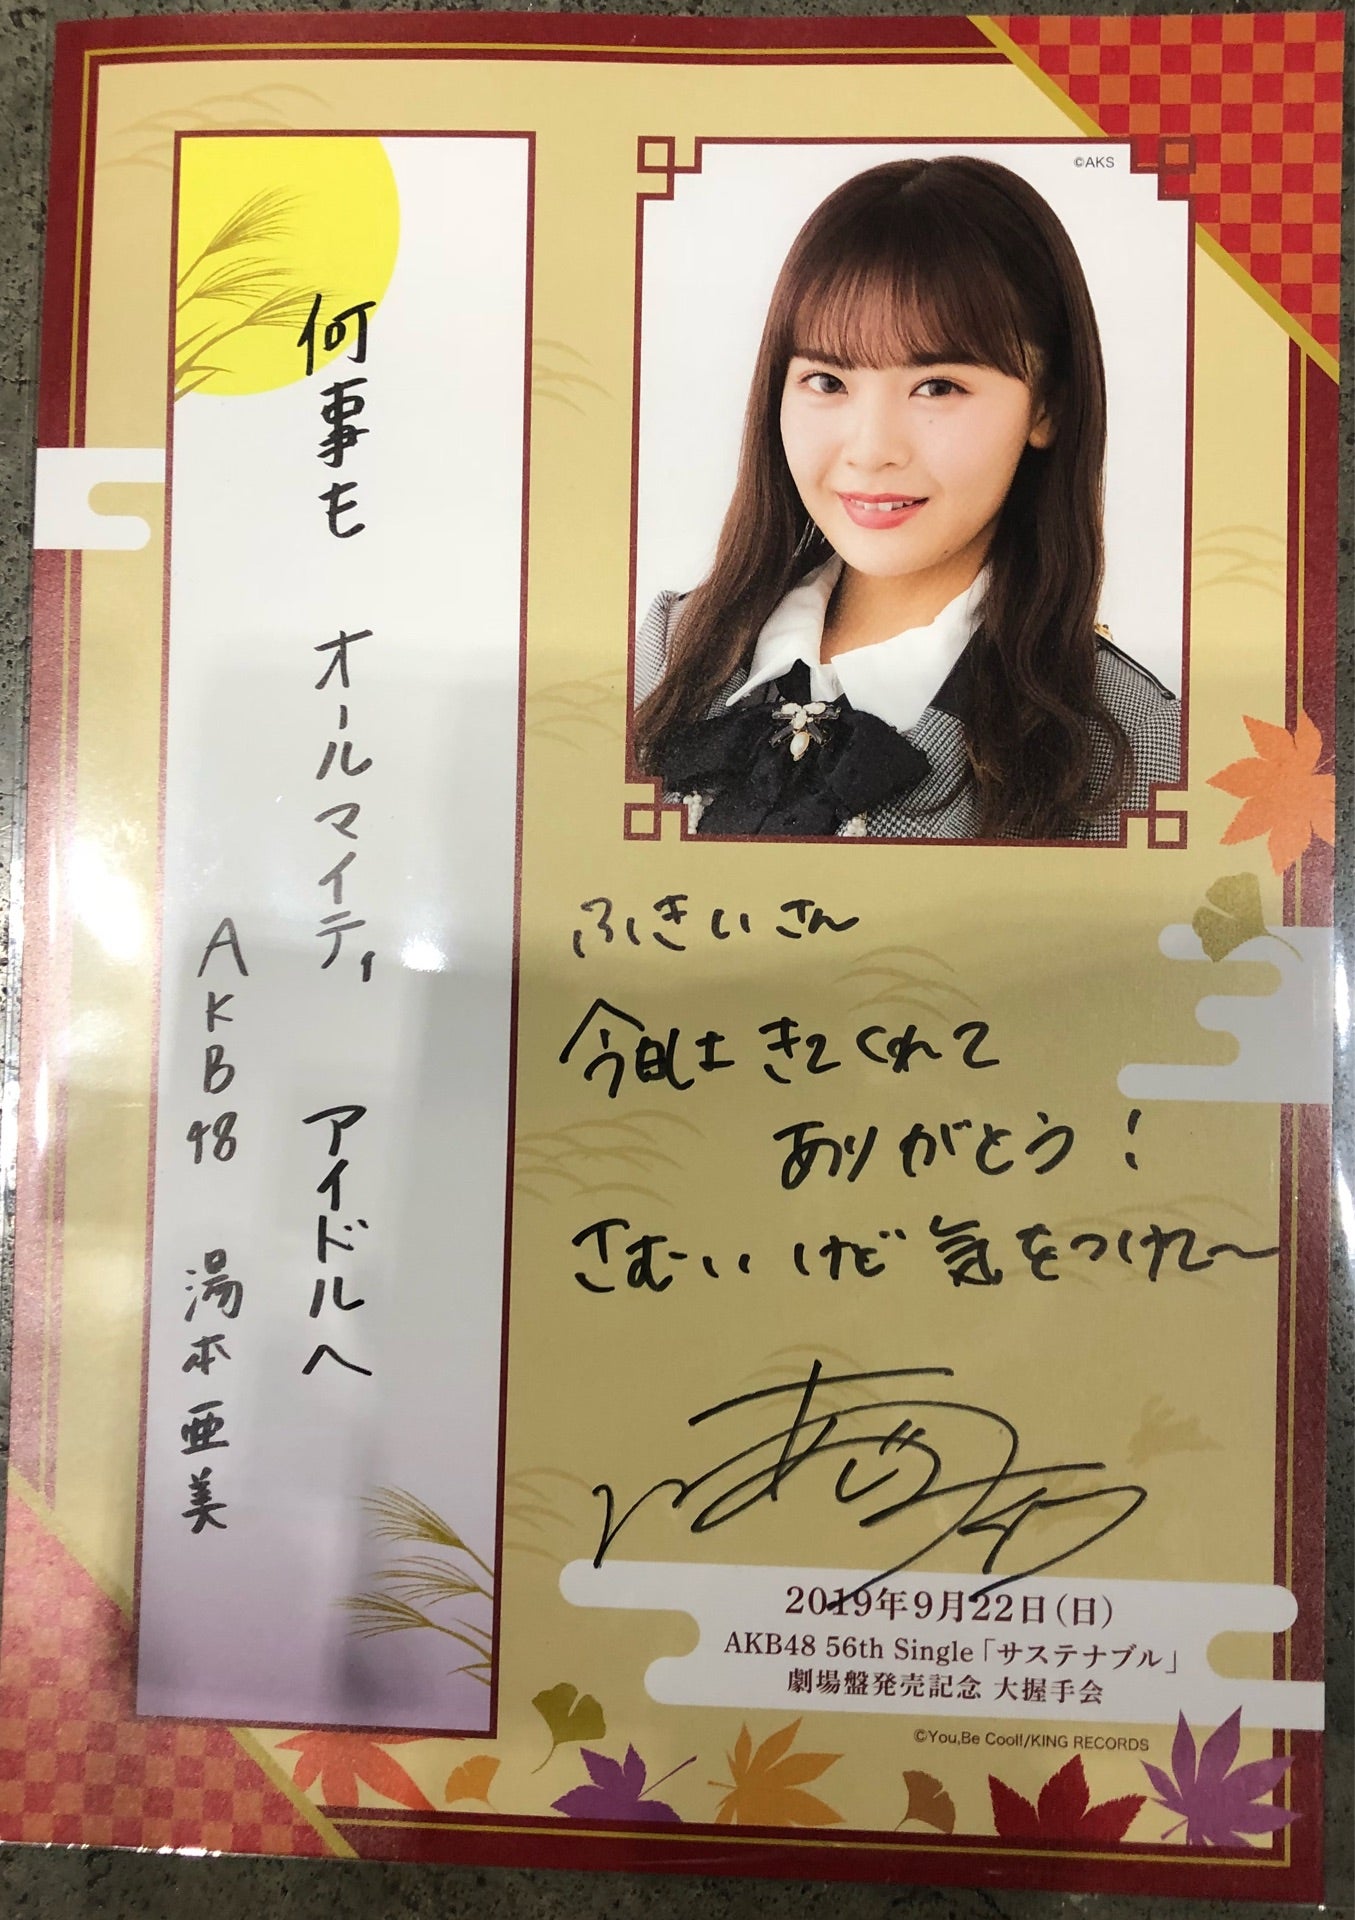 ©AKS
何事も オールマイティ アイドルへ
AKB48 湯本亜美
ふきいさん
今日は きてくれて
ありがとう!
さむーいけど 気をつけて〜
2019年9月22日(日)
AKB48 56th Single「サステナブル」
劇場盤発売記念 大握手会
©You,Be Cool!/KING RECORDS